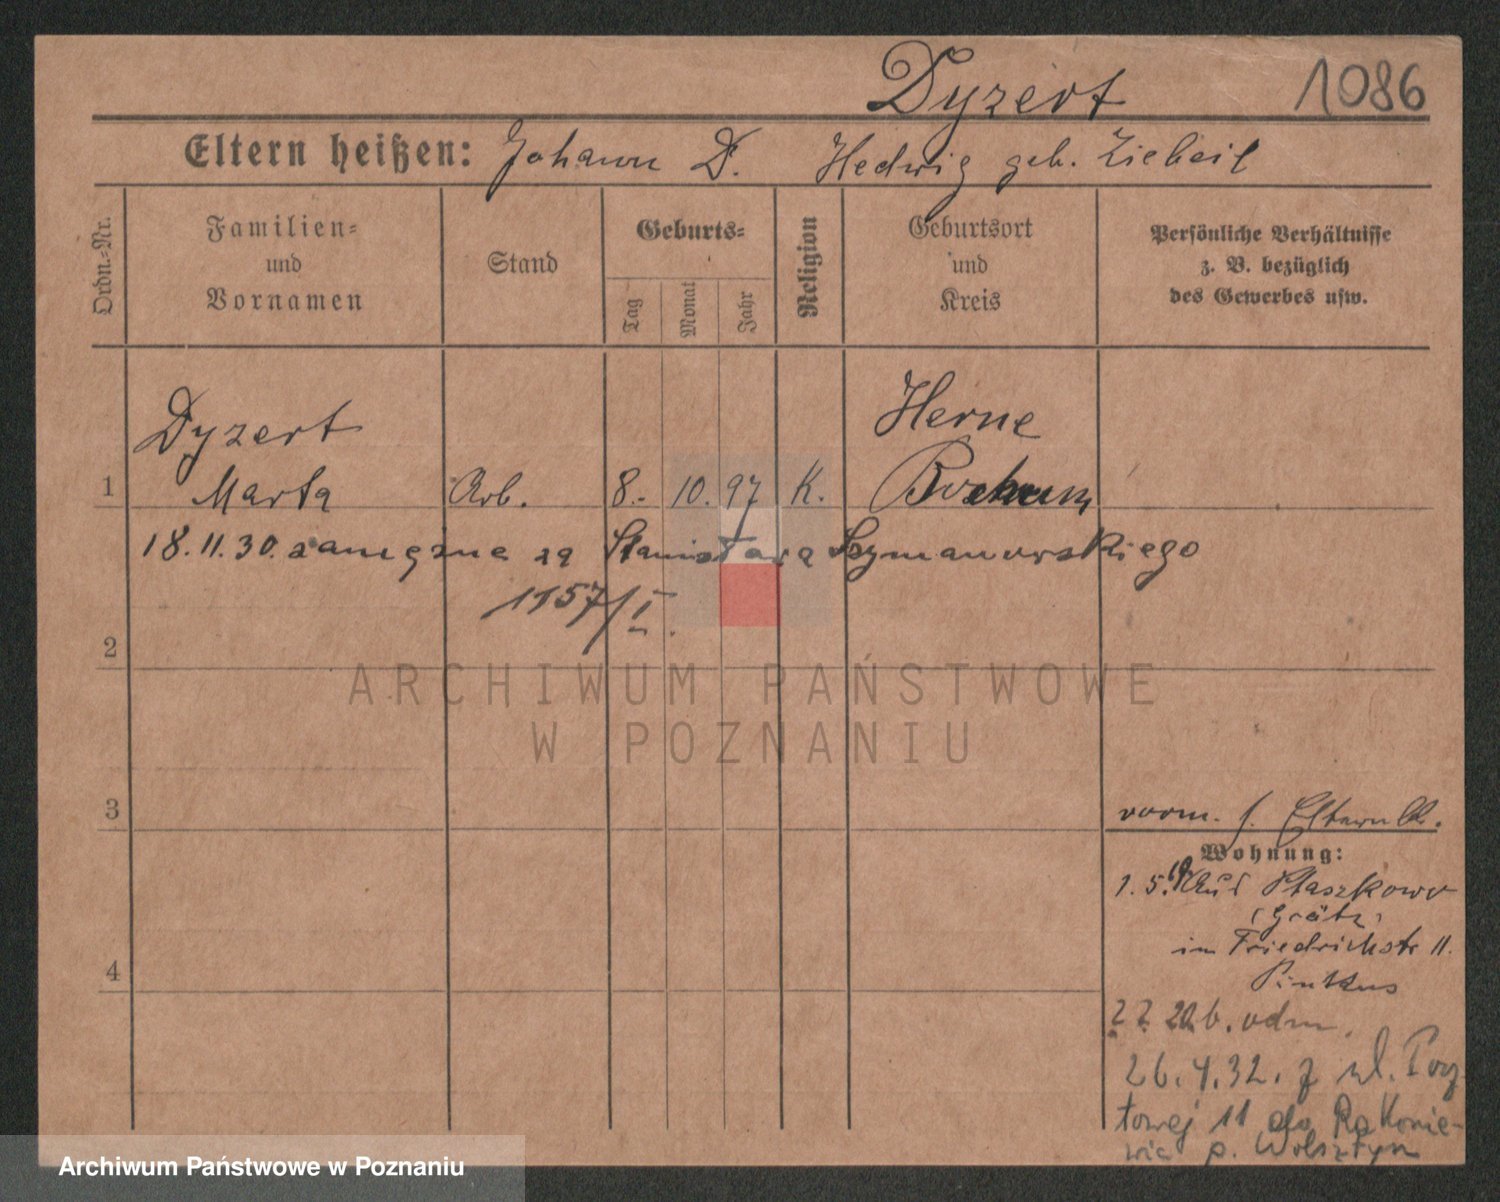 Dyzert 1086
Eltern heißen: Johann D. Hedwig geb. Ziebeil
Ordn.-Nr.
Familien-
und
Vornamen
Stand
Geburts-
Tag
Monat
Jahr
Religion
Geburtsort
und
Kreis
Persönliche Verhältnisse
z. B. bezüglich
des Gewerbes usw.
Dyzert Herne
1 Marta Arb. 8. 10. 97 K. Bochum
18.11.30. zamężna za Stanisława Szymanowskiego
1157/I.
2
ARCHIWUM PAŃSTWOWE
W POZNANIU
3
vorm. s. Elternbl.
Wohnung:
1. 5. Aus Ptaszkowo
(Grätz)
4 im Friedrichstr 11.
Pinkus
odm.
26.4.32. z ul. Pocz
towej 11 do Rakonie-
wic p. Wolsztyn
Archiwum Państwowe w Poznaniu